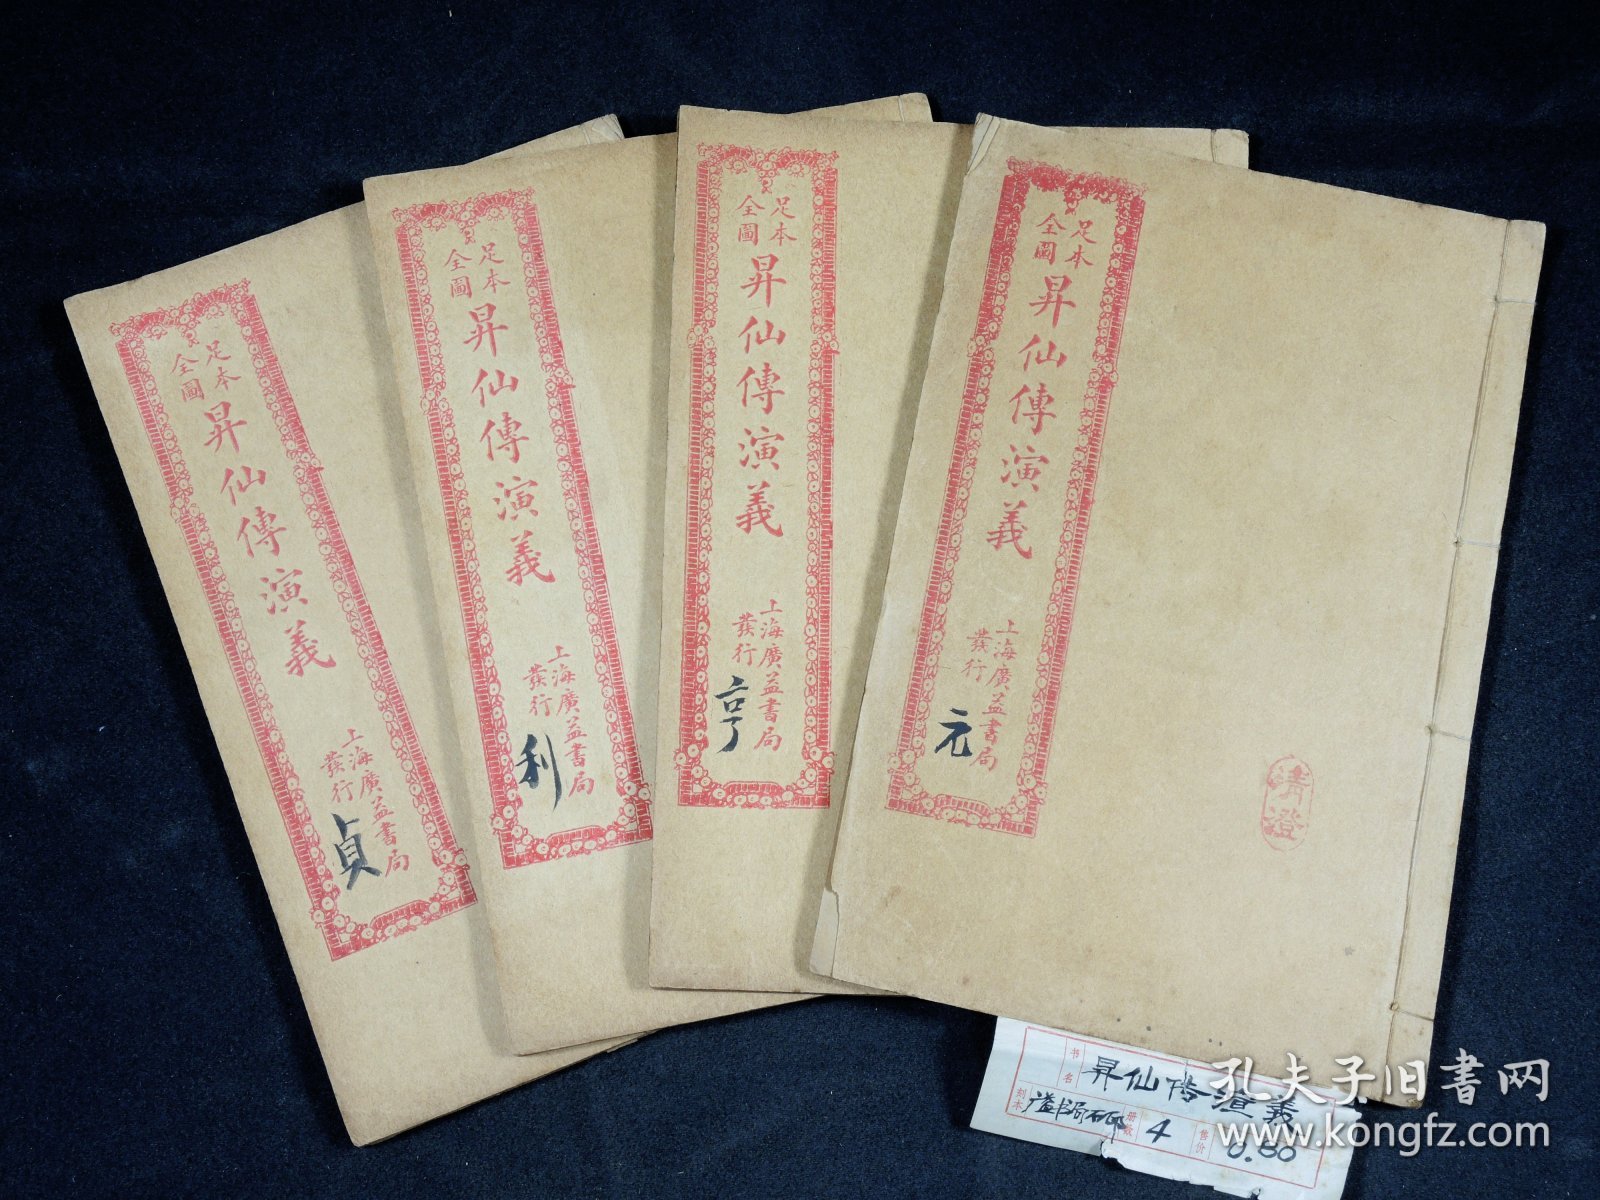 足本
全圖
昇仙傳演義
上海廣益書局
發行
元
清澄
足本
全圖
昇仙傳演義
上海廣益書局
發行
亨
足本
全圖
昇仙傳演義
上海廣益書局
發行
利
足本
全圖
昇仙傳演義
上海廣益書局
發行
贞
书名
昇仙传演義
刻本
广益书局石印
册数
4
售价
0.80
孔夫子旧書网
www.kongfz.com